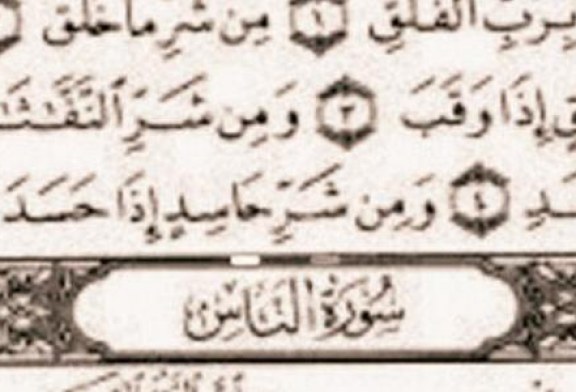 بِرَبِّ ٱلْفَلَقِ ١ مِن شَرِّ مَا خَلَقَ
إِذَا وَقَبَ ٣ وَمِن شَرِّ ٱلنَّفَّٰثَٰ
ـدِ ٤ وَمِن شَرِّ حَاسِدٍ إِذَا حَسَدَ
سُورَةُ النَّاسِ